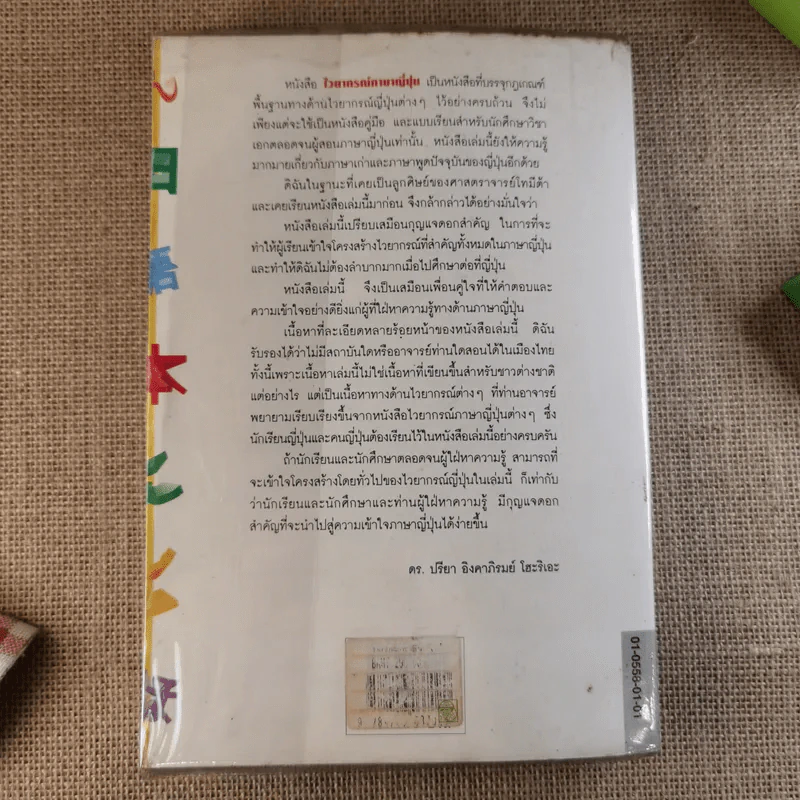 หนังสือ ไวยากรณ์ภาษาญี่ปุ่น เป็นหนังสือที่บรรจุกฎเกณฑ์
พื้นฐานทางด้านไวยากรณ์ญี่ปุ่นต่างๆ ไว้อย่างครบถ้วน จึงไม่
เพียงแต่จะใช้เป็นหนังสือคู่มือ และแบบเรียนสำหรับนักศึกษาวิชา
เอกตลอดจนผู้สอนภาษาญี่ปุ่นเท่านั้น หนังสือเล่มนี้ยังให้ความรู้
มากมายเกี่ยวกับภาษาเก่าและภาษาพูดปัจจุบันของญี่ปุ่นอีกด้วย
ดิฉันในฐานะที่เคยเป็นลูกศิษย์ของศาสตราจารย์โทมิต้า
และเคยเรียนหนังสือเล่มนี้มาก่อน จึงกล้ากล่าวได้อย่างมั่นใจว่า
หนังสือเล่มนี้เปรียบเสมือนกุญแจดอกสำคัญ ในการที่จะ
ทำให้ผู้เรียนเข้าใจโครงสร้างไวยากรณ์ที่สำคัญทั้งหมดในภาษาญี่ปุ่น
และทำให้ดิฉันไม่ต้องลำบากมากเมื่อไปศึกษาต่อที่ญี่ปุ่น
หนังสือเล่มนี้ จึงเป็นเสมือนเพื่อนคู่ใจที่ให้คำตอบและ
ความเข้าใจอย่างดียิ่งแก่ผู้ที่ใฝ่หาความรู้ทางด้านภาษาญี่ปุ่น
เนื้อหาที่ละเอียดหลายร้อยหน้าของหนังสือเล่มนี้ ดิฉัน
รับรองได้ว่าไม่มีสถาบันใดหรืออาจารย์ท่านใดสอนได้ในเมืองไทย
ทั้งนี้เพราะเนื้อหาเล่มนี้ไม่ใช่เนื้อหาที่เขียนขึ้นสำหรับชาวต่างชาติ
แต่อย่างไร แต่เป็นเนื้อหาทางด้านไวยากรณ์ต่างๆ ที่ท่านอาจารย์
พยายามเรียบเรียงขึ้นจากหนังสือไวยากรณ์ภาษาญี่ปุ่นต่างๆ ซึ่ง
นักเรียนญี่ปุ่นและคนญี่ปุ่นต้องเรียนไว้ในหนังสือเล่มนี้อย่างครบครัน
ถ้านักเรียนและนักศึกษาตลอดจนผู้ใฝ่หาความรู้ สามารถที่
จะเข้าใจโครงสร้างโดยทั่วไปของไวยากรณ์ญี่ปุ่นในเล่มนี้ ก็เท่ากับ
ว่านักเรียนและนักศึกษาและท่านผู้ใฝ่หาความรู้ มีกุญแจดอก
สำคัญที่จะนำไปสู่ความเข้าใจภาษาญี่ปุ่นได้ง่ายขึ้น
ดร. ปรียา อิงคาภิรมย์ โฮะริเอะ
01-0558-01-01